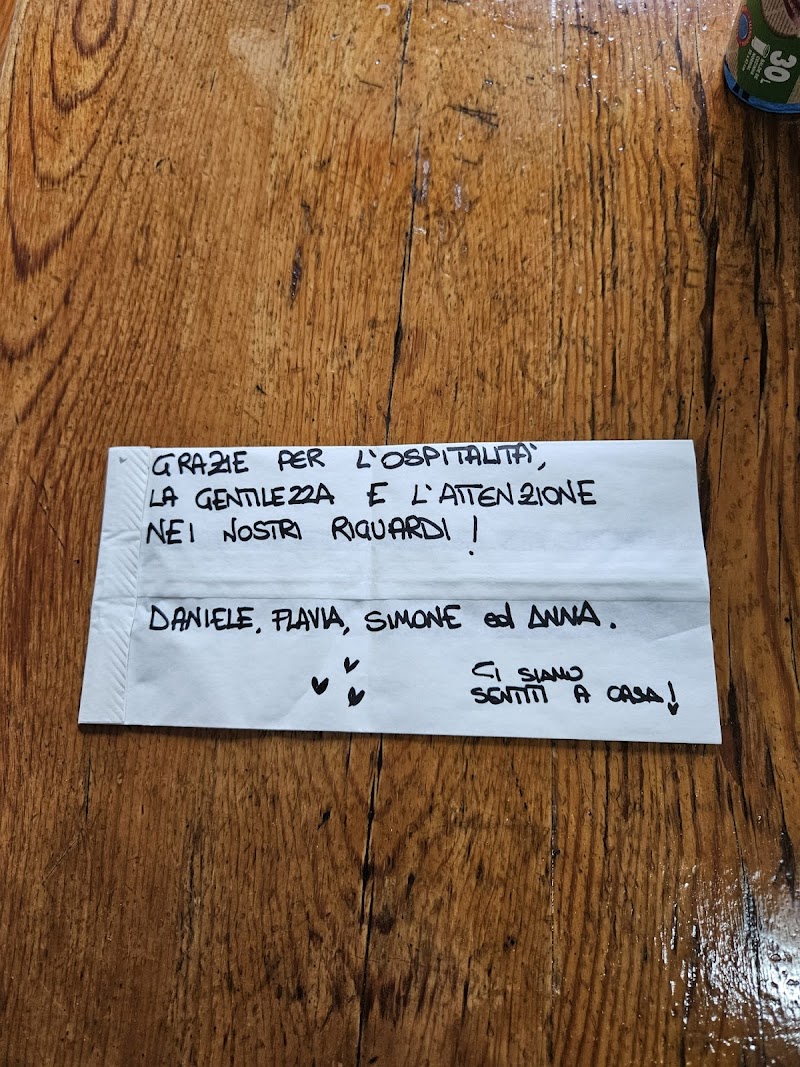 30
GRAZIE PER L'OSPITALITA',
LA GENTILEZZA E L'ATTENZIONE
NEI NOSTRI RIGUARDI !
DANIELE, FLAVIA, SIMONE ed ANNA.
CI SIAMO
SENTITI A CASA!